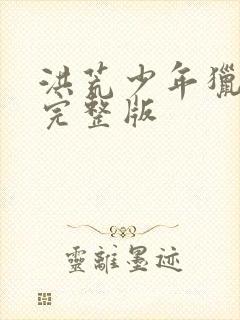 洪荒少年獵
完整版
靈離墨迹